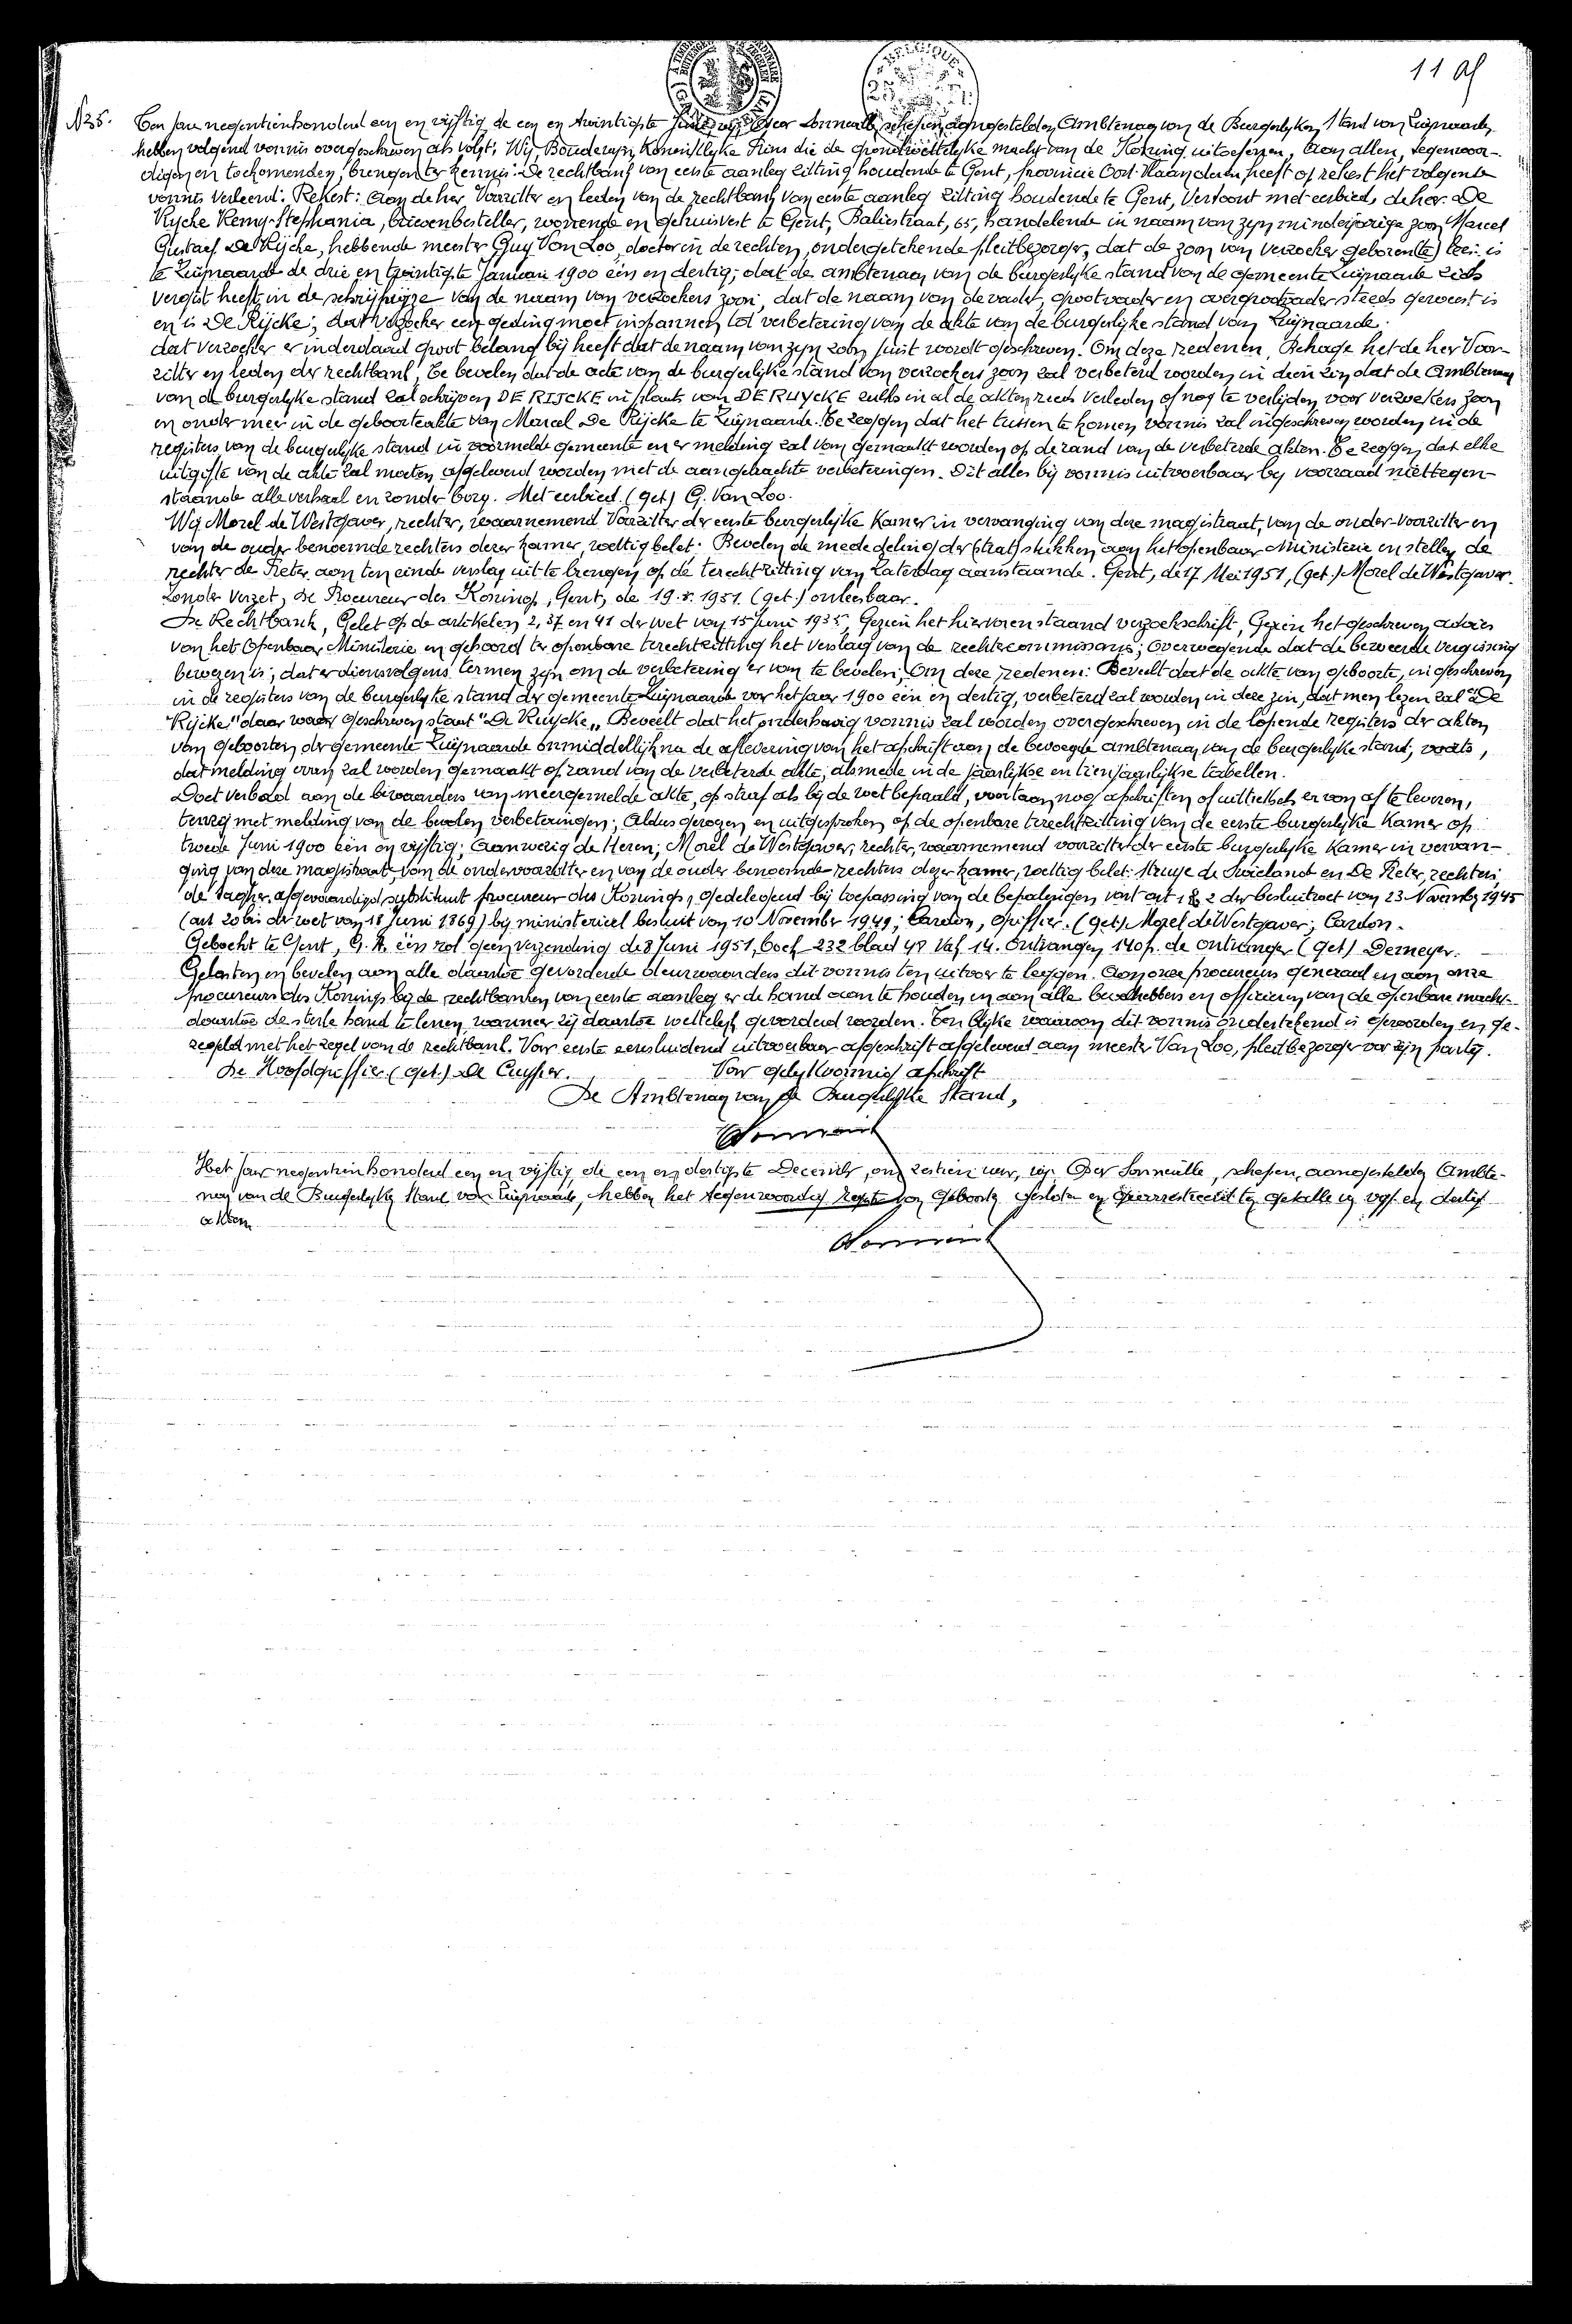 11
N 35. Ten jare negentienhonderd een en vijftig de een en twintigste Juni, wij, Oscar schepen, aangestelden Ambtenaar van de Burgerlyken Stand van Zwijnaarde,
hebben volgend vonnis overgeschreven als volgt: Wij, Boudewijn, Koninklyke Prins die de grondwettelyke macht van de Koning uitoefenen, Aan allen, tegenwoor-
digen en toekomenden, brengen ter kennis: De rechtbank van eerste aanleg zitting houdende te Gent, provincie Oost-Vlaanderen, heeft op rekest het volgende
vonnis verleend: Rekest: Aan de her Voorzitter en leden van de rechtbank van eerste aanleg zitting houdende te Gent, Vertoont met eerbied, de her. De
Rycke Remy-Stephania, brievenbesteller, wonende en gehuisvest te Gent, Baliestraat, 65, handelende in naam van zyn minderjarige zoon Marcel
Gustaaf De Rijcke, hebbende meester Guy Van Loo, doctor in de rechten, ondergetekende pleitbezorger, dat de zoon van verzoeker geboren is
te Zwijnaarde de drie en twintigste Januari 1900 één en dertig; dat de ambtenaar van de burgerlijke stand van de gemeente Zwijnaarde zich
vergist heeft in de schrijfwijze van de naam van verzoekers zoon, dat de naam van de vader, grootvader en overgrootvader steeds geweest is
en is De Rijcke; dat verzoeker een geding moet inspannen tot verbetering van de akte van de burgerlijke stand van Zwijnaarde;
dat verzoeker er inderdaad groot belang bij heeft dat de naam van zyn zoon juist wordt geschreven. Om deze redenen, Behage het de her Voor-
zitter en leden der rechtbank, Te bevelen dat de acte van de burgerlijke stand van verzoekers zoon zal verbeterd worden in dien zin dat de Ambtenaar
van de burgerlyke stand zal schrijven DE RIJCKE in plaats van DE RUYCKE zulks in al de akten reeds verleden of nog te verlijden voor verzoekers zoon
en onder meer in de geboorteakte van Marcel De Rijcke te Zwijnaarde. Te zeggen dat het tussen te komen vonnis zal ingeschreven worden in de
registers van de burgerlyke stand in voormelde gemeente en er melding zal van gemaakt worden op de rand van de verbeterde akten. Te zeggen dat elke
uitgifte van de akte zal moeten afgeleverd worden met de aangebrachte verbeteringen. Dit alles bij vonnis uitvoerbaar by voorraad niettegen-
staande alle verhaal en zonder borg. Met eerbied. (get) G. Van Loo.
Wij Morel de Westgaver, rechter, waarnemend Voorzitter der eerste burgerlijke Kamer in vervanging van deze magistraat, van de onder-voorzitter en
van de ouder benoemde rechters dezer kamer, wettig belet. Bevelen de mededeling der stukken aan het openbaar Ministerie en stellen de
rechter de Reter aan ten einde verslag uit te brengen op de terechtzitting van Zaterdag aanstaande. Gent, de 17 Mei 1951, (get.) Morel de Westgaver.
Zonder Verzet, De Procureur des Konings, Gent, de 19.5.1951. (get.) onleesbaar.
De Rechtbank, Gelet op de artikelen 2, 37 en 41 der wet van 15 Juni 1935, Gezien het hiervoren staand verzoekschrift, Gezien het geschreven advies
van het Openbaar Ministerie en gehoord ter openbare terechtzitting het verslag van de rechtercommissaris; overwegende dat de beweerde vergissing
bewezen is; dat er dienvolgens termen zijn om de verbetering er van te bevelen; Om deze redenen: Beveelt dat de akte van geboorte, ingeschreven
in de registers van de burgerlyke stand der gemeente Zwijnaarde voor het jaar 1900 één en dertig, verbeterd zal worden in deze zin, dat men lezen zal "De
Rijcke" daar waar geschreven staat "De Ruycke". Beveelt dat het onderhavig vonnis zal worden overgeschreven in de lopende registers der akten
van geboorten der gemeente Zwijnaarde onmiddellijk na de aflevering van het afschrift aan de bevoegde ambtenaar van de burgerlyke stand; voorts,
dat melding ervan zal worden gemaakt op rand van de verbeterde akte, alsmede in de jaarlijkse en tienjaarlijkse tabellen.
Doet verbod aan de bewaarders van meergemelde akte, op straf als bij de wet bepaald, voortaan nog afschriften of uittreksels ervan af te leveren,
tenzij met melding van de bevolen verbeteringen; Aldus gewezen en uitgesproken op de openbare terechtzitting van de eerste burgerlyke Kamer op
twede Juni 1900 één en vijftig; Aanwezig de Heren; Morel de Westgaver, rechter, waarnemend voorzitter der eerste burgerlyke Kamer in vervan-
ging van deze magistraat van de ondervoorzitter en van de ouder benoemde rechters dezer kamer, wettig belet: Struye de Swielande en De Reter, rechters
de afgevaardigd substituut procureur des Konings, gedelegeerd bij toepassing van de bepalingen van art 1 & 2 der besluitwet van 23 November 1945
(art 20 bis der wet van 18 Juni 1869) bij ministerieel besluit van 10 November 1949; Cardon, griffier. (get) Morel de Westgaver; Cardon.
Geboekt te Gent, G. A. één rol geen verzending de 8 Juni 1951, boek 232 blad 48 Vak 14. Ontvangen 140 f. de ontvanger (get) Demeyer.
Gelasten en bevelen aan alle daartoe gevorderde deurwaarders dit vonnis ten uitvoer te leggen. Aan onze procureurs generaal en aan onze
procureurs des Konings bij de rechtbanken van eerste aanleg er de hand aan te houden en aan alle bevelhebbers en officieren van de openbare macht
daartoe de sterke hand te lenen wanneer zij daartoe wettelijk gevorderd worden. Ten blijke waarvan dit vonnis ondertekend is geworden en ge-
zegeld met het zegel van de rechtbank. Voor eerste eensluidend uitvoerbaar afgeschrift afgeleverd aan meester Van Loo, pleitbezorger voor zijn partij.
De Hoofdgriffier (get.) De Cuyper. Voor gelykvormig afschrift
De Ambtenaar van de Burgerlyke Stand,
Het jaar negentienhonderd een en vijftig, de een en dertigste December, om zestien uur, wij, Oscar schepen, aangestelden Ambte-
naar van de Burgerlyke Stand van Zwijnaarde, hebben het tegenwoordig register van Geboorte gesloten en gearresteerd ten getalle van vijf en dertig
akten